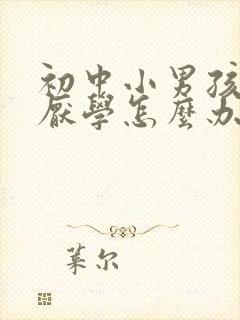 初中小男孩
厭學怎麼办
葉尔